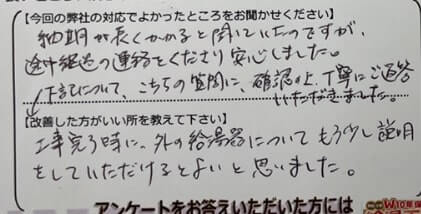 【今回の弊社の対応でよかったところをお聞かせください】
納期が長くかかると聞いていたのですが、
途中経過の連絡をくださり安心しました。
下記について、こちらの質問に、確認の上、丁寧にご返答
いただきました。
【改善した方がいい所を教えて下さい】
工事完了時に、外の給湯器についてもう少し説明
をしていただけるとよいと思いました。
アンケートをお答えいただいた方には
W10年保